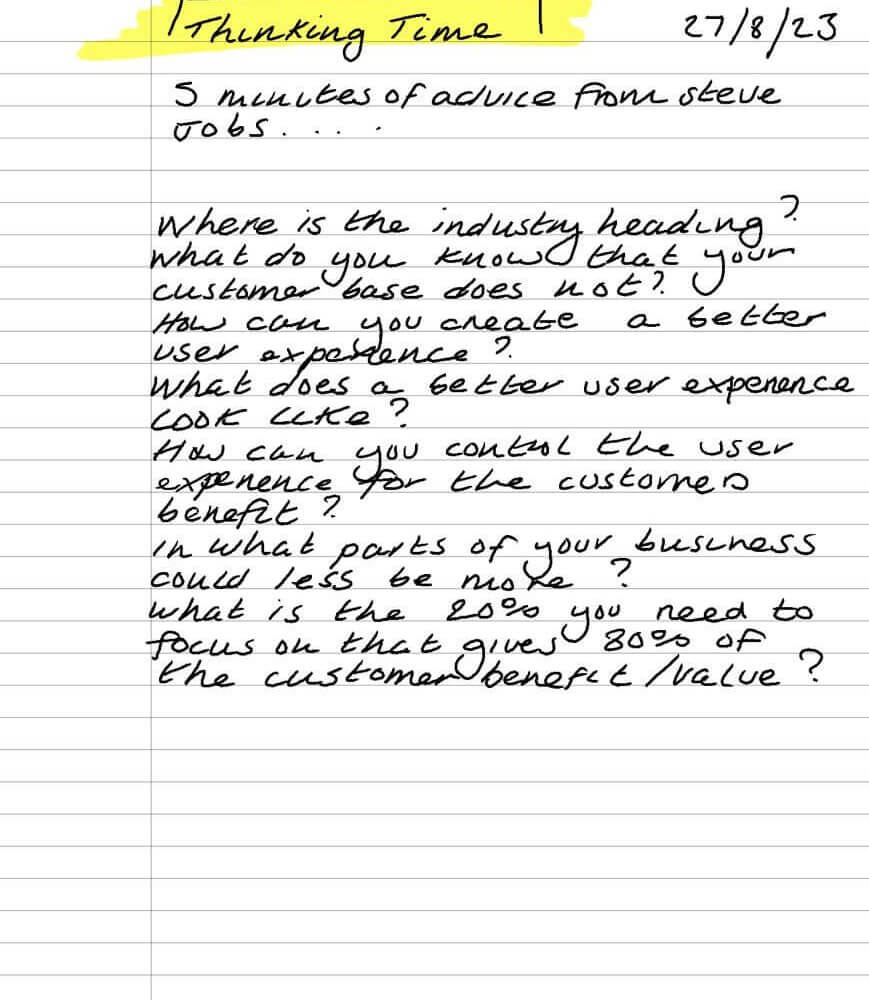 Thinking Time 27/8/23
5 minutes of advice from steve
Jobs....
Where is the industry heading?
What do you know that your
customer base does not?
How can you create a better
user experience?
What does a better user experience
look like?
How can you control the user
experience for the customers
benefit?
In what parts of your business
could less be more?
What is the 20% you need to
focus on that gives 80% of
the customer benefit/value?